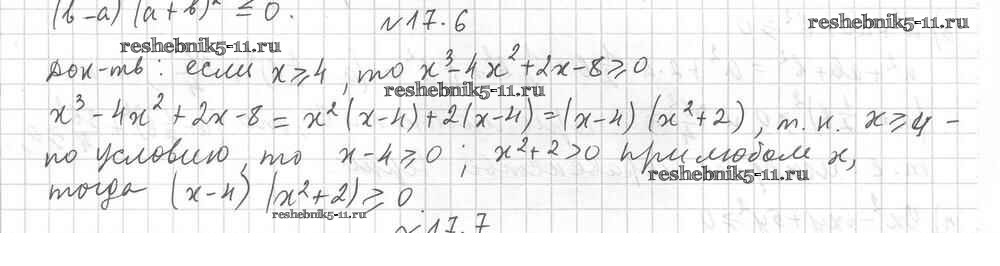 (b-a)(a+b)² ≤ 0.
N17.6
reshebnik5-11.ru
reshebnik5-11.ru
Док-ть: если x ≥ 4, то x³-4x²+2x-8 ≥ 0
reshebnik5-11.ru
x³-4x²+2x-8 = x²(x-4)+2(x-4) = (x-4)(x²+2), т.к. x ≥ 4 -
по условию, то x-4 ≥ 0; x²+2 > 0 при любом x,
reshebnik5-11.ru
тогда (x-4)(x²+2) ≥ 0.
reshebnik5-11.ru
N17.7